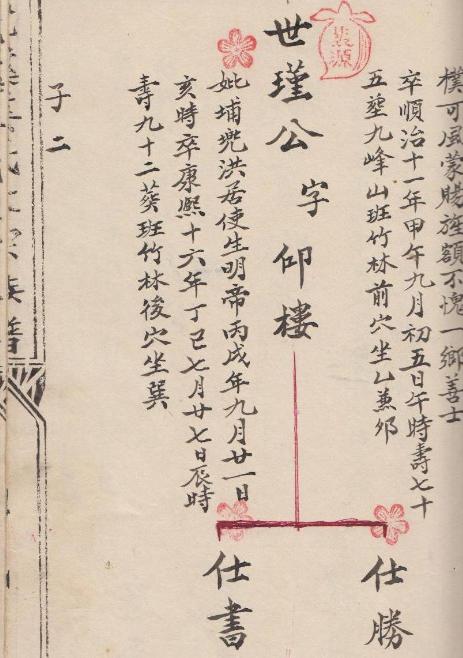 樸可風蒙賜旌額不愧一鄉善士
卒順治十一年甲午九月初五日午時壽七十
五塟九峰山班竹林前穴坐乙兼卯
裴源
世瑾公 字 仰樓
妣埔兜洪居使生明帝丙戌年九月廿一日
亥時卒康熙十六年丁巳七月廿七日辰時
壽九十二葬班竹林後穴坐巽
子二
仕勝
仕書
族譜